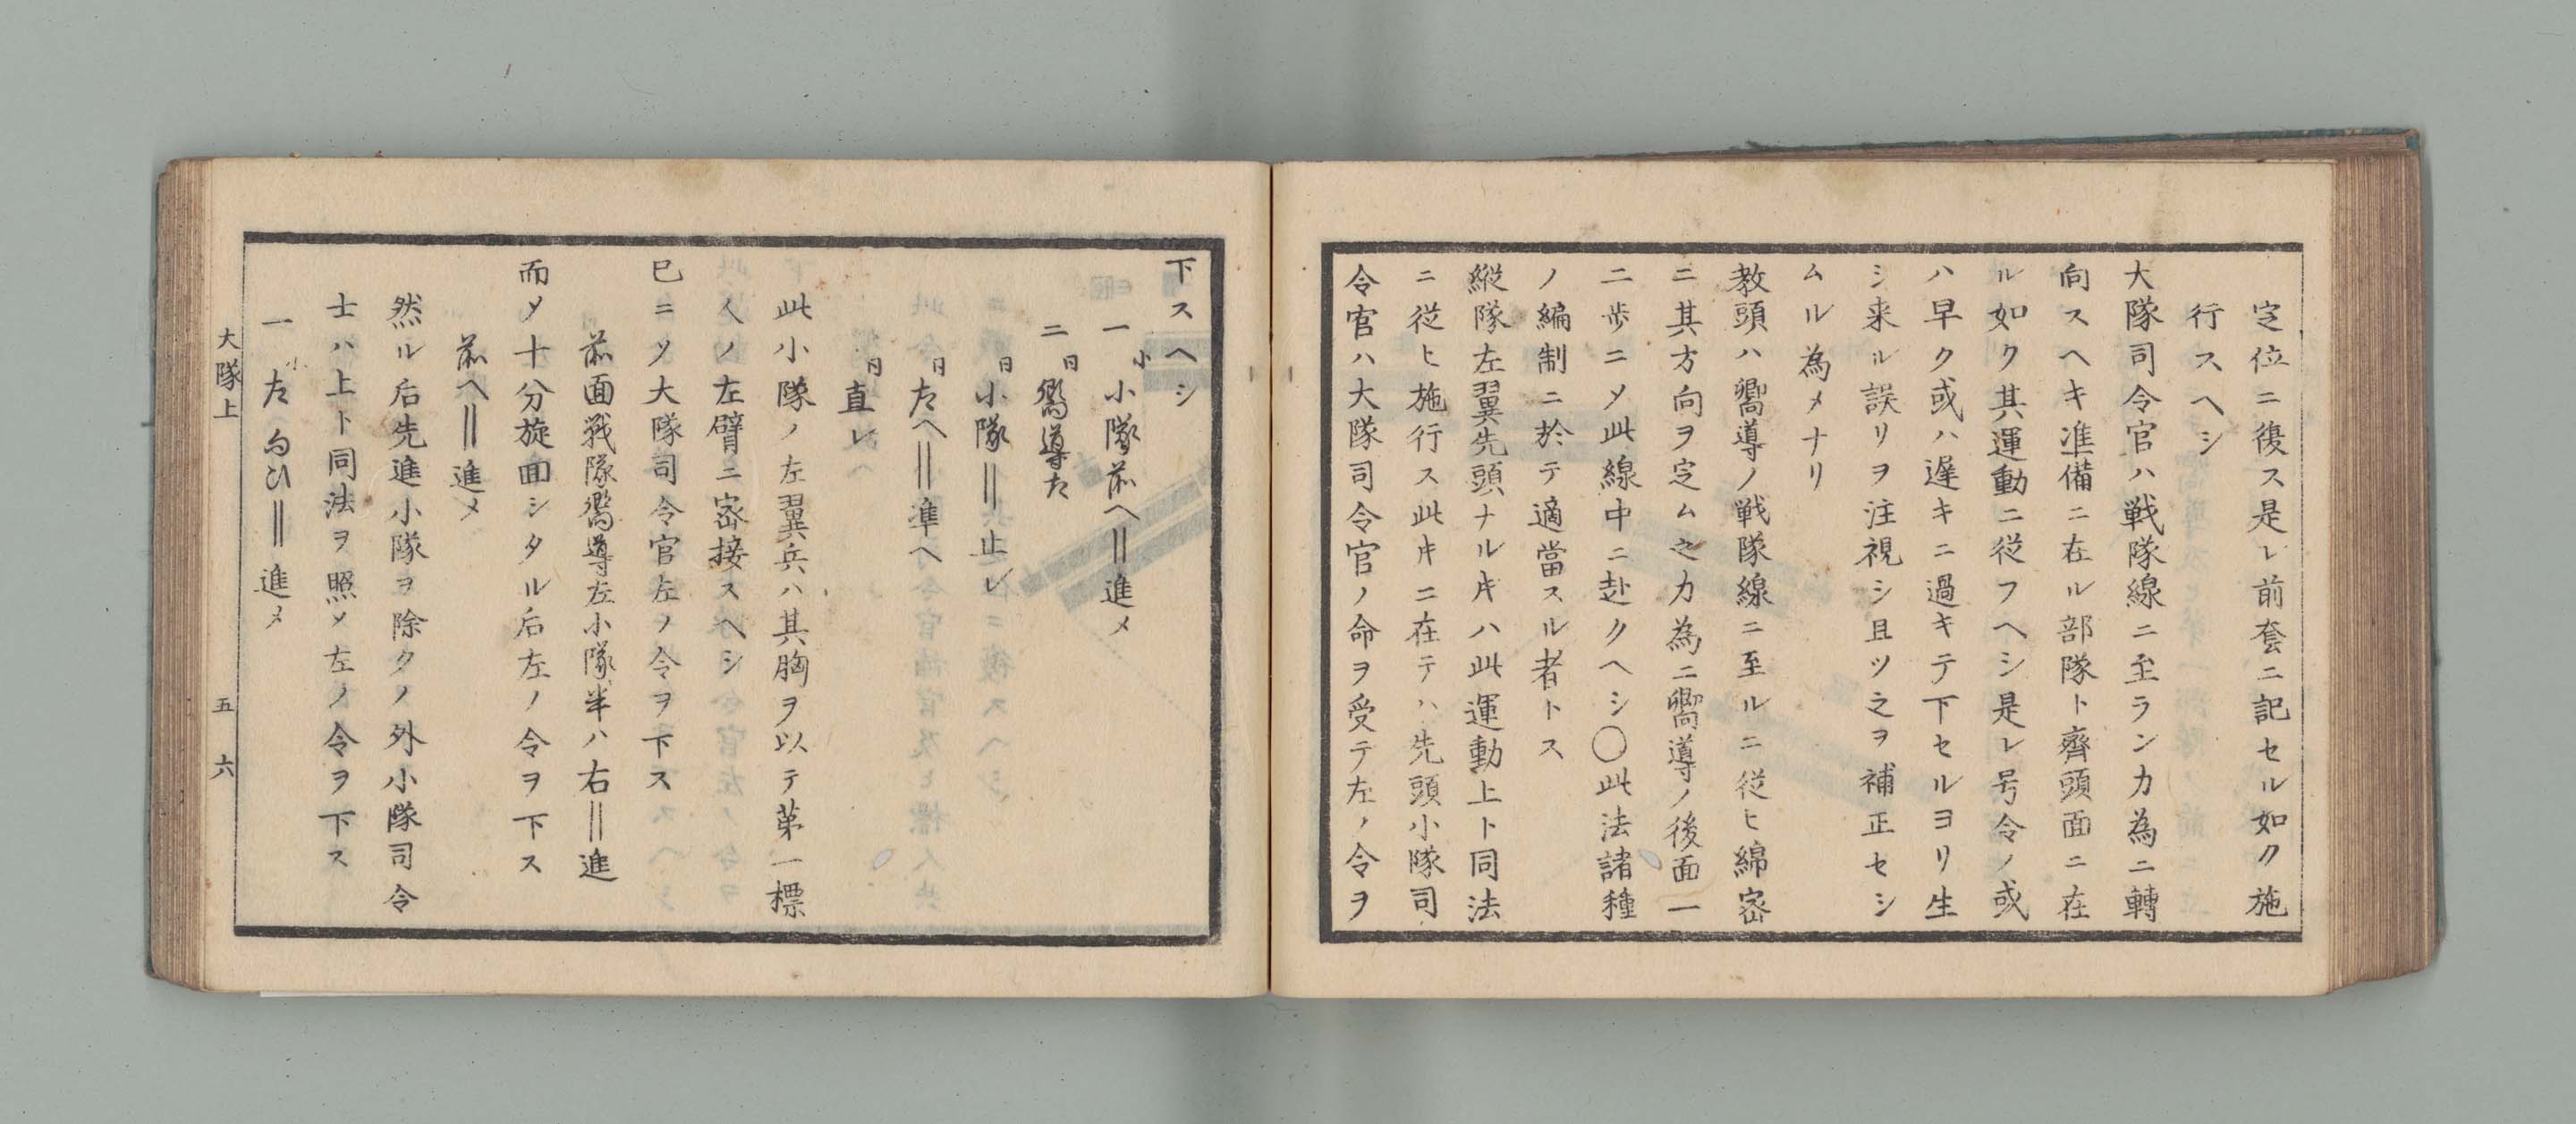 定位ニ復ス是レ前套ニ記セル如ク施
行スヘシ
大隊司令官ハ戦隊線ニ至ランカ為ニ轉
向スヘキ准備ニ在ル部隊ト齊頭面ニ在
ル如ク其運動ニ従フヘシ是レ号令ノ或
ハ早ク或ハ遅キニ過キテ下セルヨリ生
シ来ル誤リヲ注視シ且ツ之ヲ補正セシ
ムル為メナリ
教頭ハ嚮導ノ戦隊線ニ至ルニ従ヒ綿密
ニ其方向ヲ定ム之カ為ニ嚮導ノ後面一
二歩ニ〆此線中ニ赴クヘシ〇此法諸種
ノ編制ニ於テ適當スル者トス
縦隊左翼先頭ナル片ハ此運動上ト同法
ニ従ヒ施行ス此片ニ在テハ先頭小隊司
令官ハ大隊司令官ノ命ヲ受テ左ノ令ヲ
下スヘシ
一 小 小隊前へ‖進メ
二 日 嚮導左
日 小隊‖止レ
日 左へ‖準へ
日 直レ
此小隊ノ左翼兵ハ其胸ヲ以テ第一標
人ノ左臂ニ密接スヘシ
已ニ〆大隊司令官左ノ令ヲ下ス
前面戦隊嚮導左小隊半ハ右‖進
而〆十分旋回シタル后左ノ令ヲ下ス
前へ‖進メ
然ル后先進小隊ヲ除クノ外小隊司令
士ハ上ト同法ヲ照〆左ノ令ヲ下ス
一 小 左向ひ‖進メ
大隊上 五 六